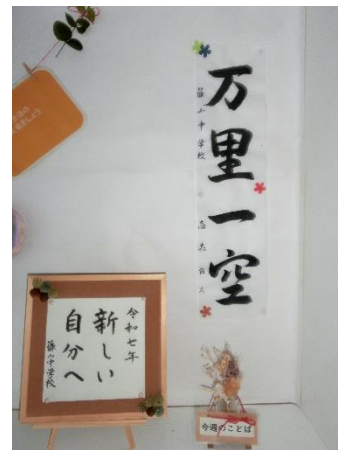 万里一空
篠山中学校
令和七年
新しい
自分へ
篠山中学校
今週のことば